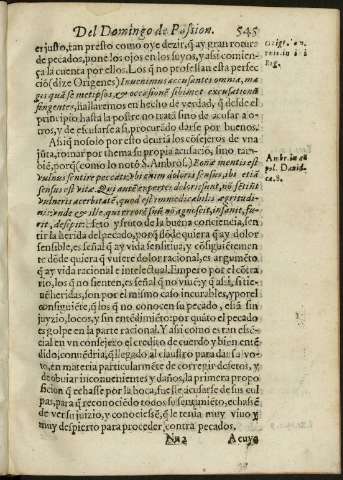 Del Domingo de Passion. 545
er justo, tan presto como oye dezir, q̃ ay gran rotura
de pecados, pone los ojos en los suyos, y assi comien-
ça la cuenta por ellos. Los q̃ no professan esta perfec-
ciõ (dize Origenes) Inuenimus accusantes omnia, ma
gis quã se metipsos, & occasionẽ sibimet excusationũ
fingentes, hallaremos en hecho de verdad, q̃ desde el
principio hasta la postre no trata sino de acusar a o-
tros, y de escusarse a si, procurado darse por buenos.
Assi q̃ no solo por esto deurian los cõsejeros de vna
justa, tomar por thema su propia acusaciõ, sino tam-
biẽ, porq̃ (como lo notò S. Ambros.) Bonæ mentis est
vulnus sentire peccati: vbi anim dolor is sensus, ibi etiã
sensus est vitæ. Qui autẽ expertes doloris sunt, nõ sẽtiũt
vulneris acerbitatẽ, quod est immedicabilis ægritudi-
nis: vnde & ille, qui errorẽ suũ nõ agnoscit, insanit, fu-
rit, desipit: fetõ y fruto de la buena conciencia, sen-
tir la herida del pecado, porq̃ dõde quiera q̃ ay dolor
sensible, es señal q̃ ay vida sensitiua, y cõsiguiẽtemen-
te dõde quiera q̃ vuiere dolor racional, es argumẽto
q̃ ay vida racional e intelectual. Empero por el cõtra
rio, los q̃ no sienten, es señal q̃ no viuẽ: y q̃ assi, si tie-
nẽ heridas, son por el mismo caso incurables, y por el
consiguiẽte, q̃ los q̃ no conocen su pecado, està sin
juyzio, locos, y sin entẽdimiẽto: por quãto el pecado
es golpe en la parte racional. Y assi como es tan essẽ-
cial en vn consejero el credito de cuerdo y bien entẽ-
dido, conuẽdria, q̃ llegado al claustro para dar su vo-
to, en materia particularmẽte de corregir defetos, y
de obuiar inconuenientes y daños, la primera propo
sicion q̃ echasse por la boca, fuesse acusarse de sus cul
pas, para q̃ reconociẽdo todos su sentimiẽto, echassẽ
de ver su juizio, y conociessẽ, q̃ le tenia muy viuo y
muy despierto para proceder contra pecados.
Nn 2 A cuyo
Amb. in ca
pol. Dauid.
ca. 8.